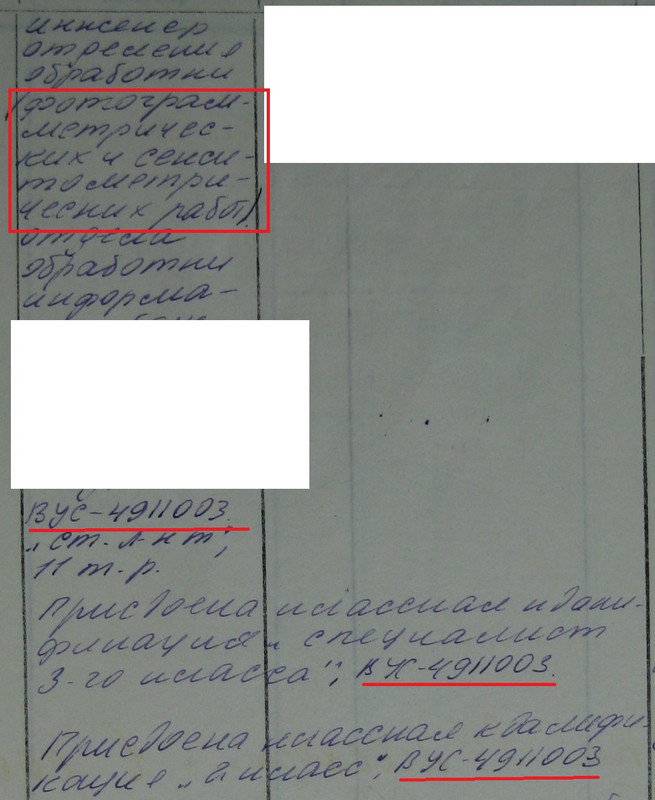 инженер
отделения
обработки
(фотограм-
метричес-
ких и сенси-
тометри-
ческих работ)
отдела
обработки
информа-
ВУС-4911003.
"ст. л-нт",
11 т.р.
Присвоена классная квали-
фикация "специалист
3-го класса", ВУС-4911003.
Присвоена классная квалифи-
кация "2 класс", ВУС-4911003